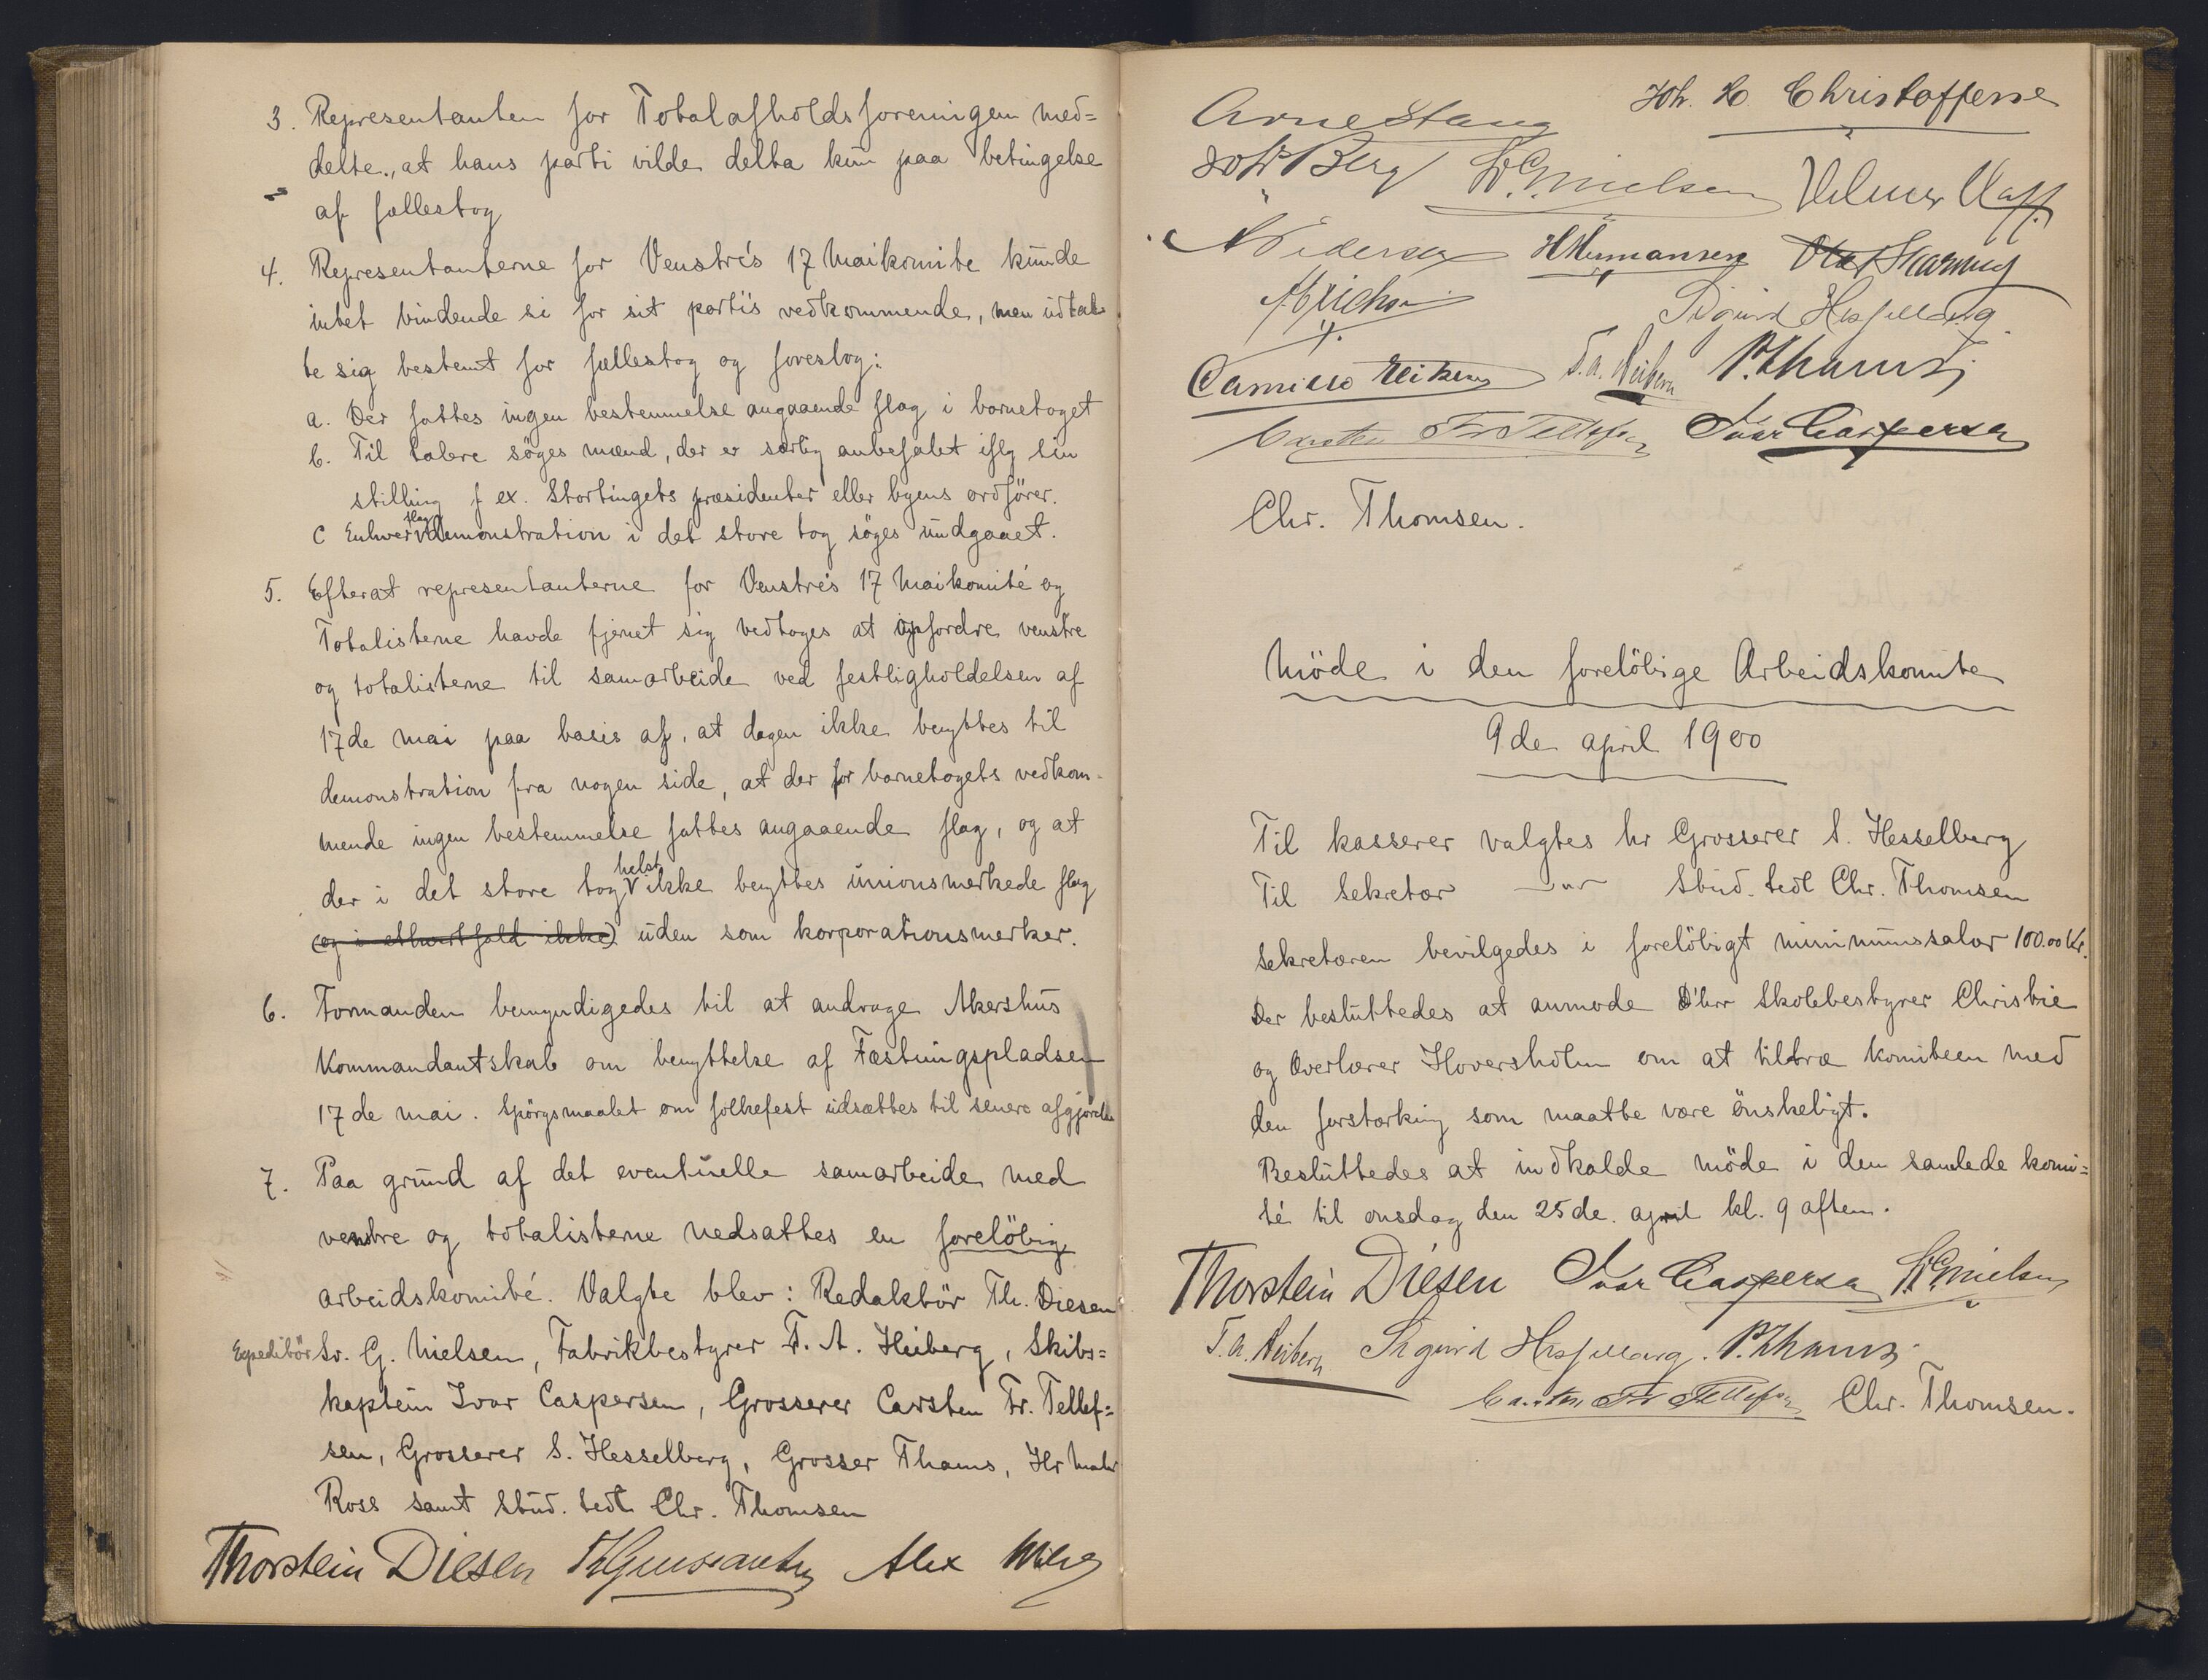 3. Representanten for Totalafholdsforeningen med=
delte, at hans parti vilde delta kun paa betingelse
af fællestog
4. Representanterne for Venstre's 17 Maikomite kunde
intet bindende si for sit parti's vedkommende, men udtal
te sig bestemt for fællestog og forestog:
a. Der fattes ingen bestemmelse angaaende flag i barnetoget
b. Til talere söges mænd, der er særlig anbefalet iflg sin
stilling f ex. Stortingets præsidenter eller byens ordförer.
c Enhver flagdemonstration i det store tog söges undgaaet.
5. Efterat representanterne for Venstre's 17 Maikomité og
Totalisterne havde fjernet sig vedtoges at opfordre venstre
og totalisterne til samarbeide ved festligholdelsen af
17de mai paa basis af, at dagen ikke benyttes til
demonstration fra nogen side, at der for barnetogets vedkom-
mende ingen bestemmelse fattes angaaende flag, og at
der i det store tog helst ikke benyttes unionsmerkede flag
(og i ethvert fald ikke) uden som korporationsmerker.
6. Formanden bemyndigedes til at andrage Akershus
Kommandantskab om benyttelse af Fæstningspladsen
17de mai. Spörgsmaalet om folkefest udsættes til senere afgjörelse
7. Paa grund af det eventuelle samarbeide med
venstre og totalisterne nedsattes en forelöbig
arbeidskomité. Valgte blev: Redaktör Th. Diesen
Expeditör Sv. G. Nielsen, Fabrikbestyrer F. A. Heiberg, Skibs=
kaptein Ivar Caspersen, Grosserer Carsten Fr. Tellef=
sen, Grosserer S. Hesselberg, Grosser Thams, Hr Maler
Ross samt Stud. tecl Chr. Thomsen
Thorstein Diesen Alex
Joh. L. Christoffersen
Arne Stang
Joh Berg Sv. G. Nielsen
N Pedersen H Hermansen Olaf
Sigurd Hesselberg
Camillo F. A. Heiberg P. Thams
Carsten Fr Tellefsen Ivar Caspersen
Chr. Thomsen.
Möde i den forelöbige Arbeidskomite
9de april 1900
Til kasserer valgtes hr Grosserer S. Hesselberg
Til Sekretær —"— Stud. tecl Chr. Thomsen
Sekretæren bevilgedes i forelöbigt minimumssalær 100.00 Kr.
Der besluttedes at anmode D'hrr Skolebestyrer Christie
og Overlærer Hoversholm om at tiltræ komiteen med
den forstærkning som maatte være önskeligt.
Besluttedes at indkalde möde i den samlede komi=
té til onsdag den 25de. april kl. 9 aften.
Thorstein Diesen Ivar Caspersen Sv. G. Nielsen
F. A. Heiberg Sigurd Hesselberg. P. Thams
Carsten Fr Tellefsen Chr. Thomsen.